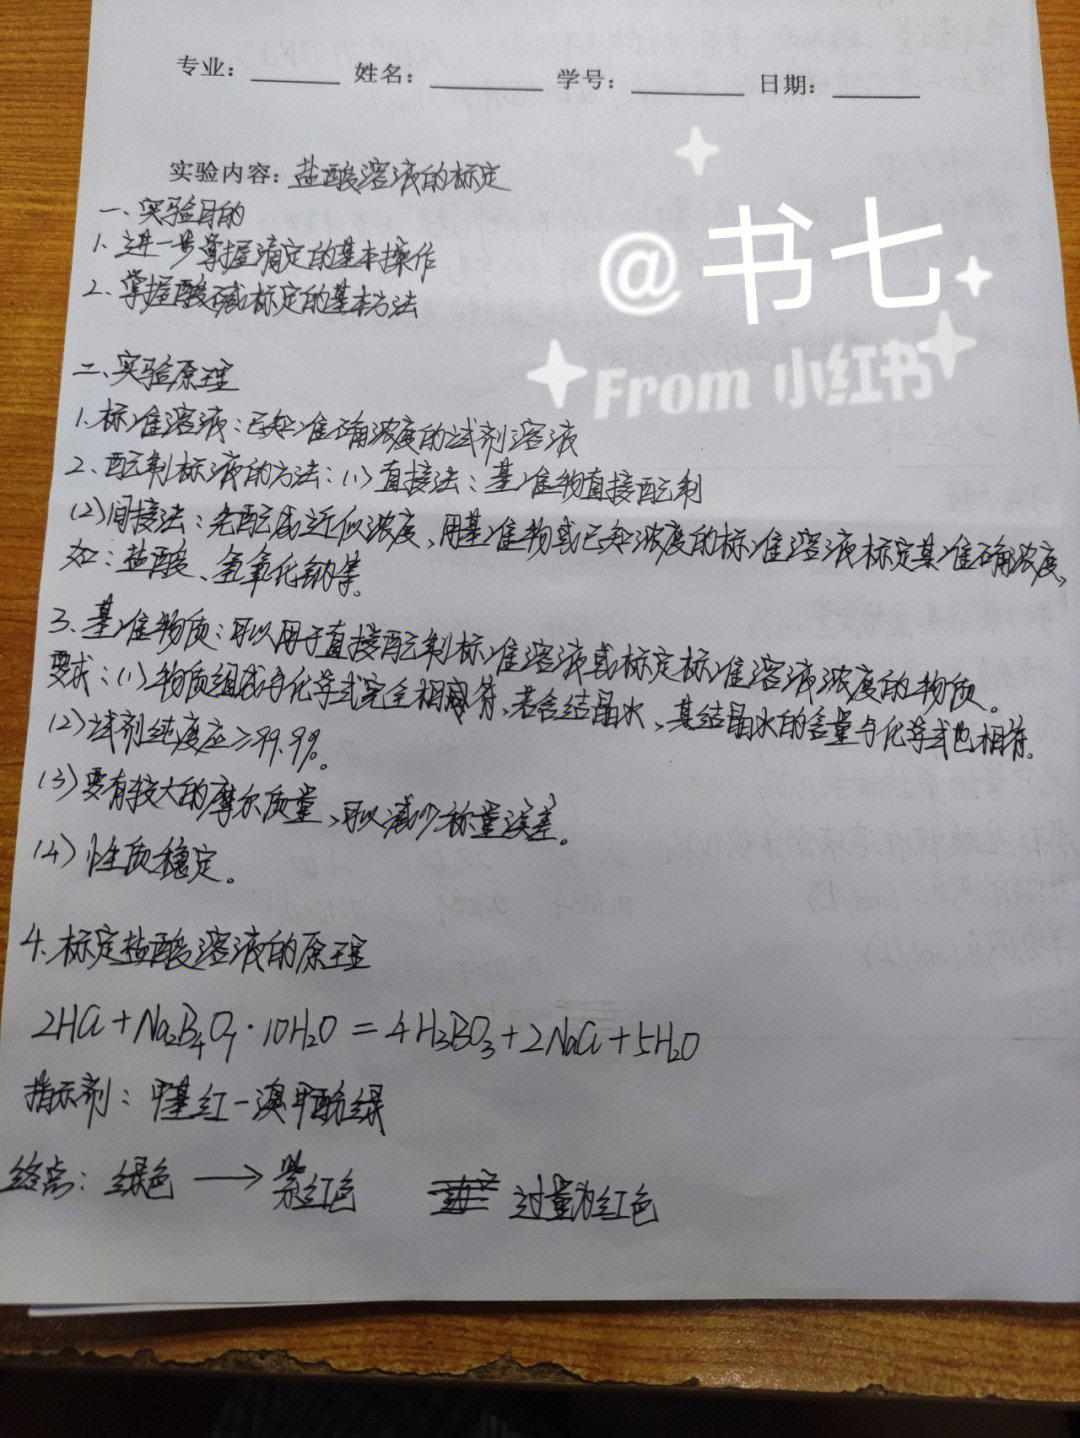 专业: 姓名: 学号: 日期:
实验内容: 盐酸溶液的标定
一、实验目的
1. 进一步掌握滴定的基本操作
2. 掌握酸碱标定的基本方法
@书七
From 小红书
二、实验原理
1. 标准溶液:已知准确浓度的试剂溶液
2、配制标液的方法:(1)直接法:基准物直接配制
(2)间接法:先配成近似浓度、用基准物或已知浓度的标准溶液标定其准确浓度,
如:盐酸、氢氧化钠等。
3、基准物质:可以用于直接配制标准溶液或标定标准溶液浓度的物质。
要求:(1)物质组成与化学式完全相符、若含结晶水、其结晶水的含量与化学式也相符。
(2)试剂纯度应≥99.9%。
(3)要有较大的摩尔质量、可以减少称量误差。
(4)性质稳定。
4. 标定盐酸溶液的原理
2HCl+Na₂B₄O₇·10H₂O=4H₃BO₃+2NaCl+5H₂O
指示剂:甲基红-溴甲酚绿
终点:绿色→紫红色 过量为红色